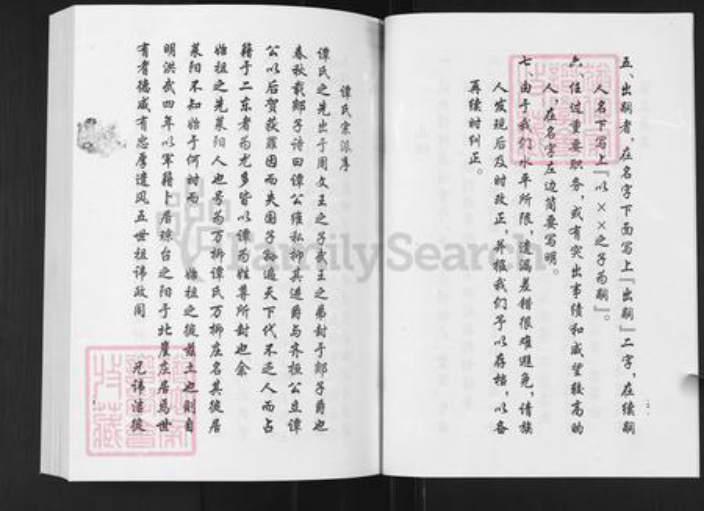 五、出嗣者，在名字下面写上『出嗣』二字，在续嗣
人名下写上『以××之子为嗣』。
六、任过重要职务，或有突出事绩和威望较高的
人，在名字左边简要写明。
七、由于我们水平所限，遗漏差错很难避免，请族
人发现后及时改正，并报我们予以存档，以备
再续时纠正。
谭氏宗派序
谭氏之先出于周文王之子武王之弟封于郯子爵也
春秋载郯子诗曰谭公维私抑其进爵与齐桓公立谭
公以后贺获罪因而失国子孙遍天下代不乏人而占
籍于二东者为尤多皆以谭为姓尊所封也余
始祖之先莱阳人也号为万柳谭氏万柳庄名其徙居
莱阳不知始于何时而 始祖之徙兹土也则自
明洪武四年以军籍卜居琼台之阳于北崖庄居焉世
有者德咸有忠厚遗风五世祖讳政周 兄讳洁徙
FamilySearch